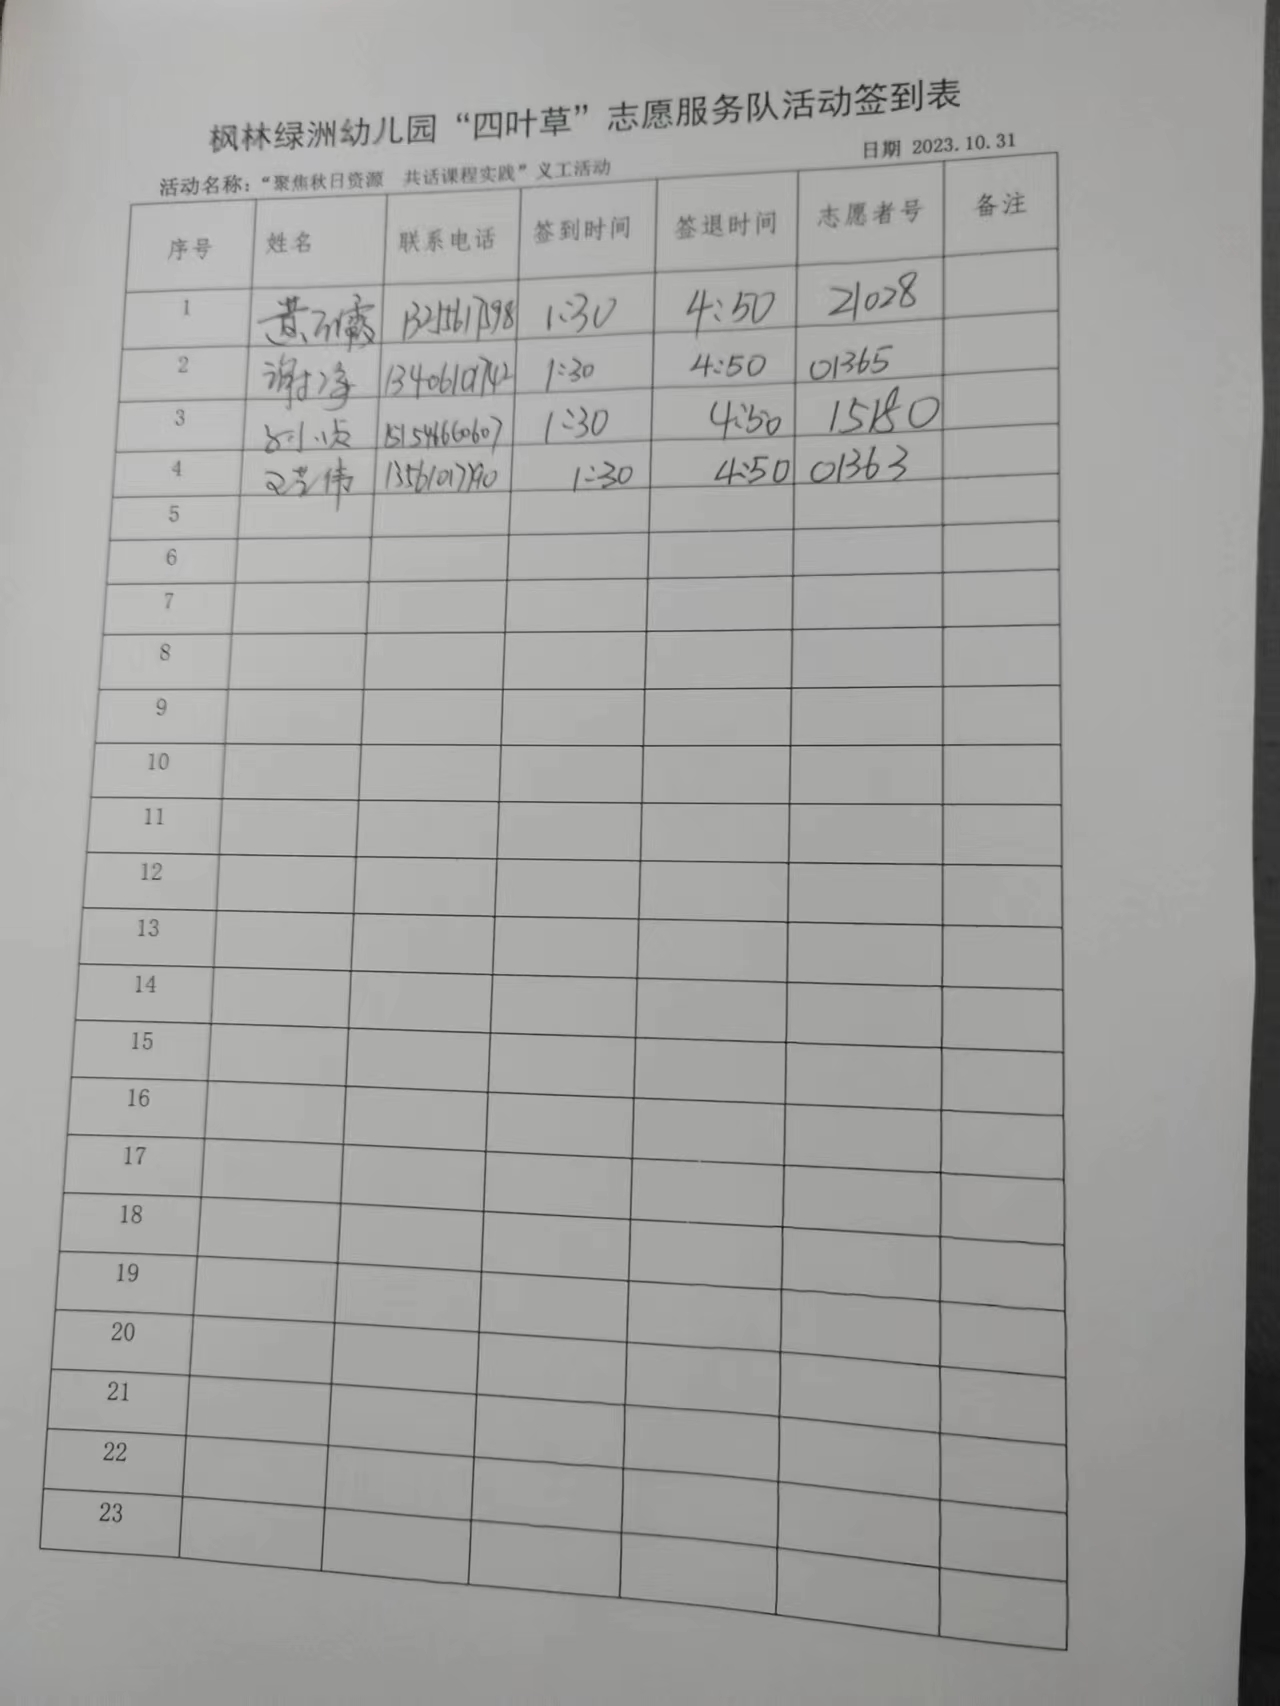 枫林绿洲幼儿园“四叶草”志愿服务队活动签到表
活动名称：“聚焦秋日资源 共话课程实践”义工活动 日期 2023.10.31
序号 姓名 联系电话 签到时间 签退时间 志愿者号 备注
1 1:30 4:50 21028
2 13406101742 1:30 4:50 01365
3 15154666607 1:30 4:50
4 1:30 4:50 01363
5
6
7
8
9
10
11
12
13
14
15
16
17
18
19
20
21
22
23